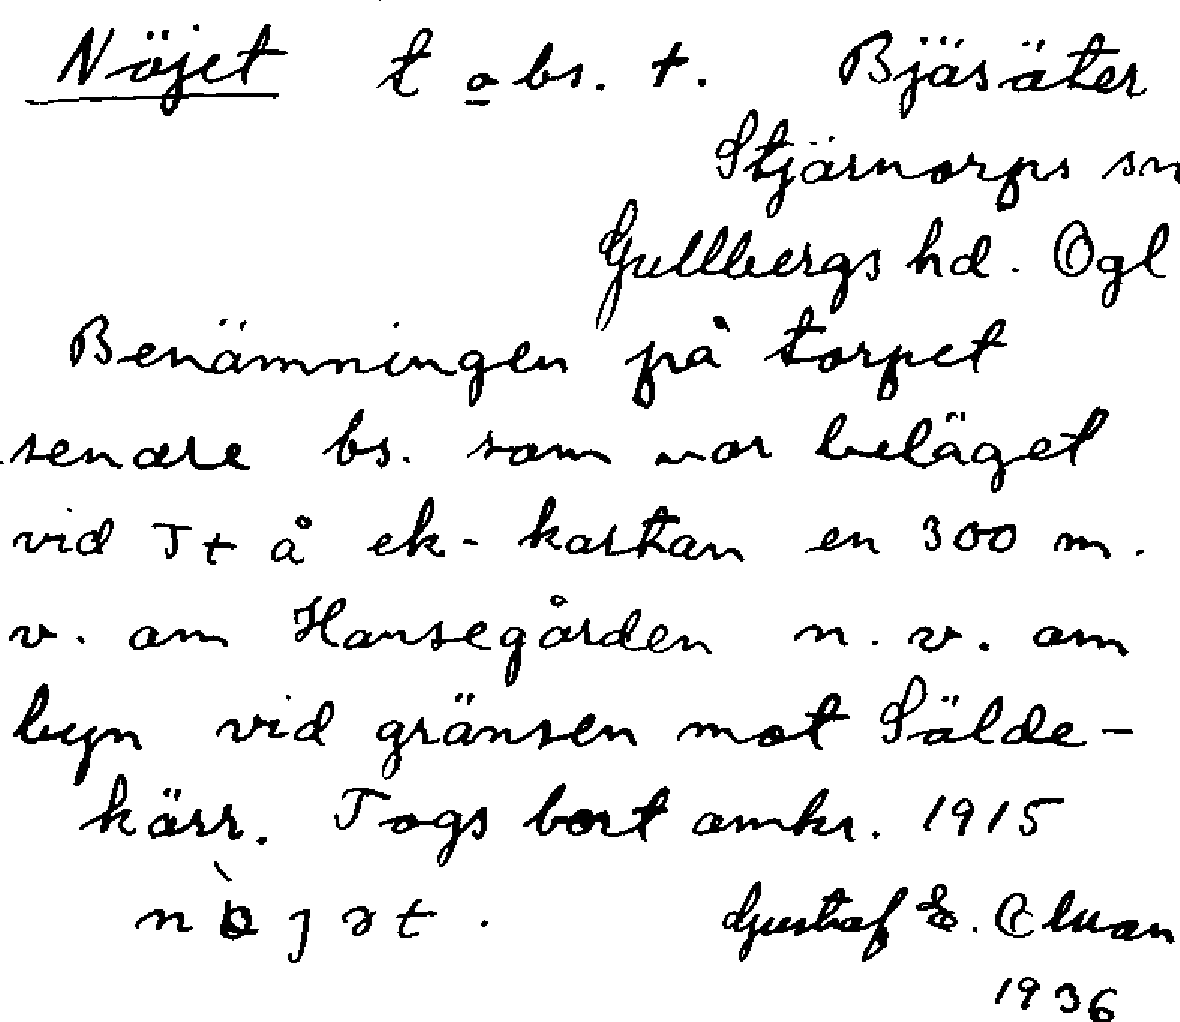 Nöjet t o bs. †. Bjäsäter
Stjärnorps sn
Gullbergs hd. Ögl
Benämningen på torpet
senare bs. som var beläget
vid Tt å ek-kartan en 300 m.
v. om Hansegården n. v. om
byn vid gränsen mot Sälde-
kärr. Togs bort omkr. 1915
Gustaf E.
1936